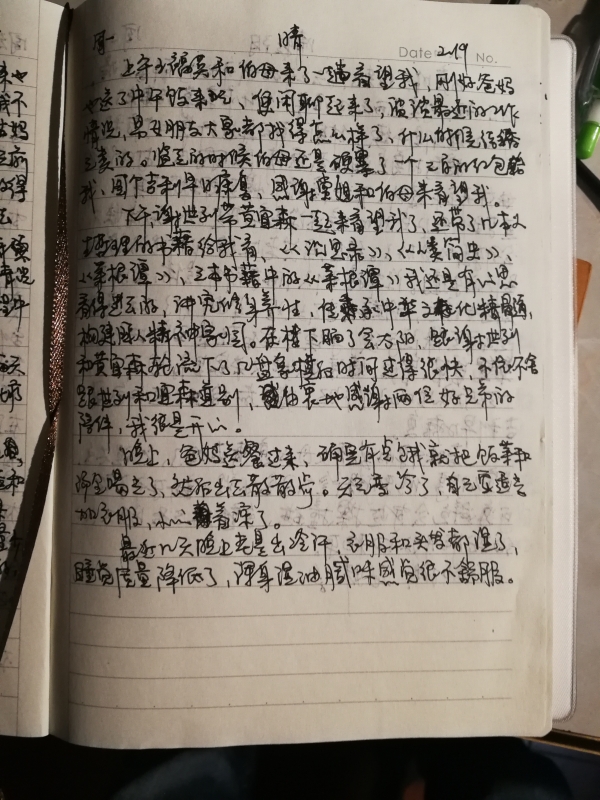 周一 晴 Date 2.19 No.
上午 和伯母来了一趟看望我，刚好爸妈
也送了中午饭来吃，便闲聊起来了，谈谈最近的工作
情况，男女朋友大家都找得怎么样了，什么时候结婚
之类的。临走的时候伯母还是硬塞了一个 的红包给
我，图个吉利早日康复，感谢 姐和伯母来看望我。
下午谢世列带黄宜森一起来看望我了，还带了几本
哲理的书籍给我看，《《沉思录》》，《《人类简史》》，
《《菜根谭》》，三本书籍中的《《菜根谭》》我还是有心思
看得进去的，讲究修身养性，传 中华文化精髓，
构建私人精神家园。在楼下晒了会太阳，跟谢世列
和黄宜森轮流下了几盘象棋后时间过得很快，不依不舍
跟世列和宜森道别，由衷地感谢两位好兄弟的
陪伴，我很是开心。
晚上，爸妈送餐过来，确实有点饿我就把饭菜和
汤全喝光了，然后出去散散步。天气变冷了，自己要适当
加衣服，小心着凉了。
最近几天晚上老是出冷汗，衣服和头发都湿了，
睡觉质量降低了，浑身湿油腻味感觉很不舒服。